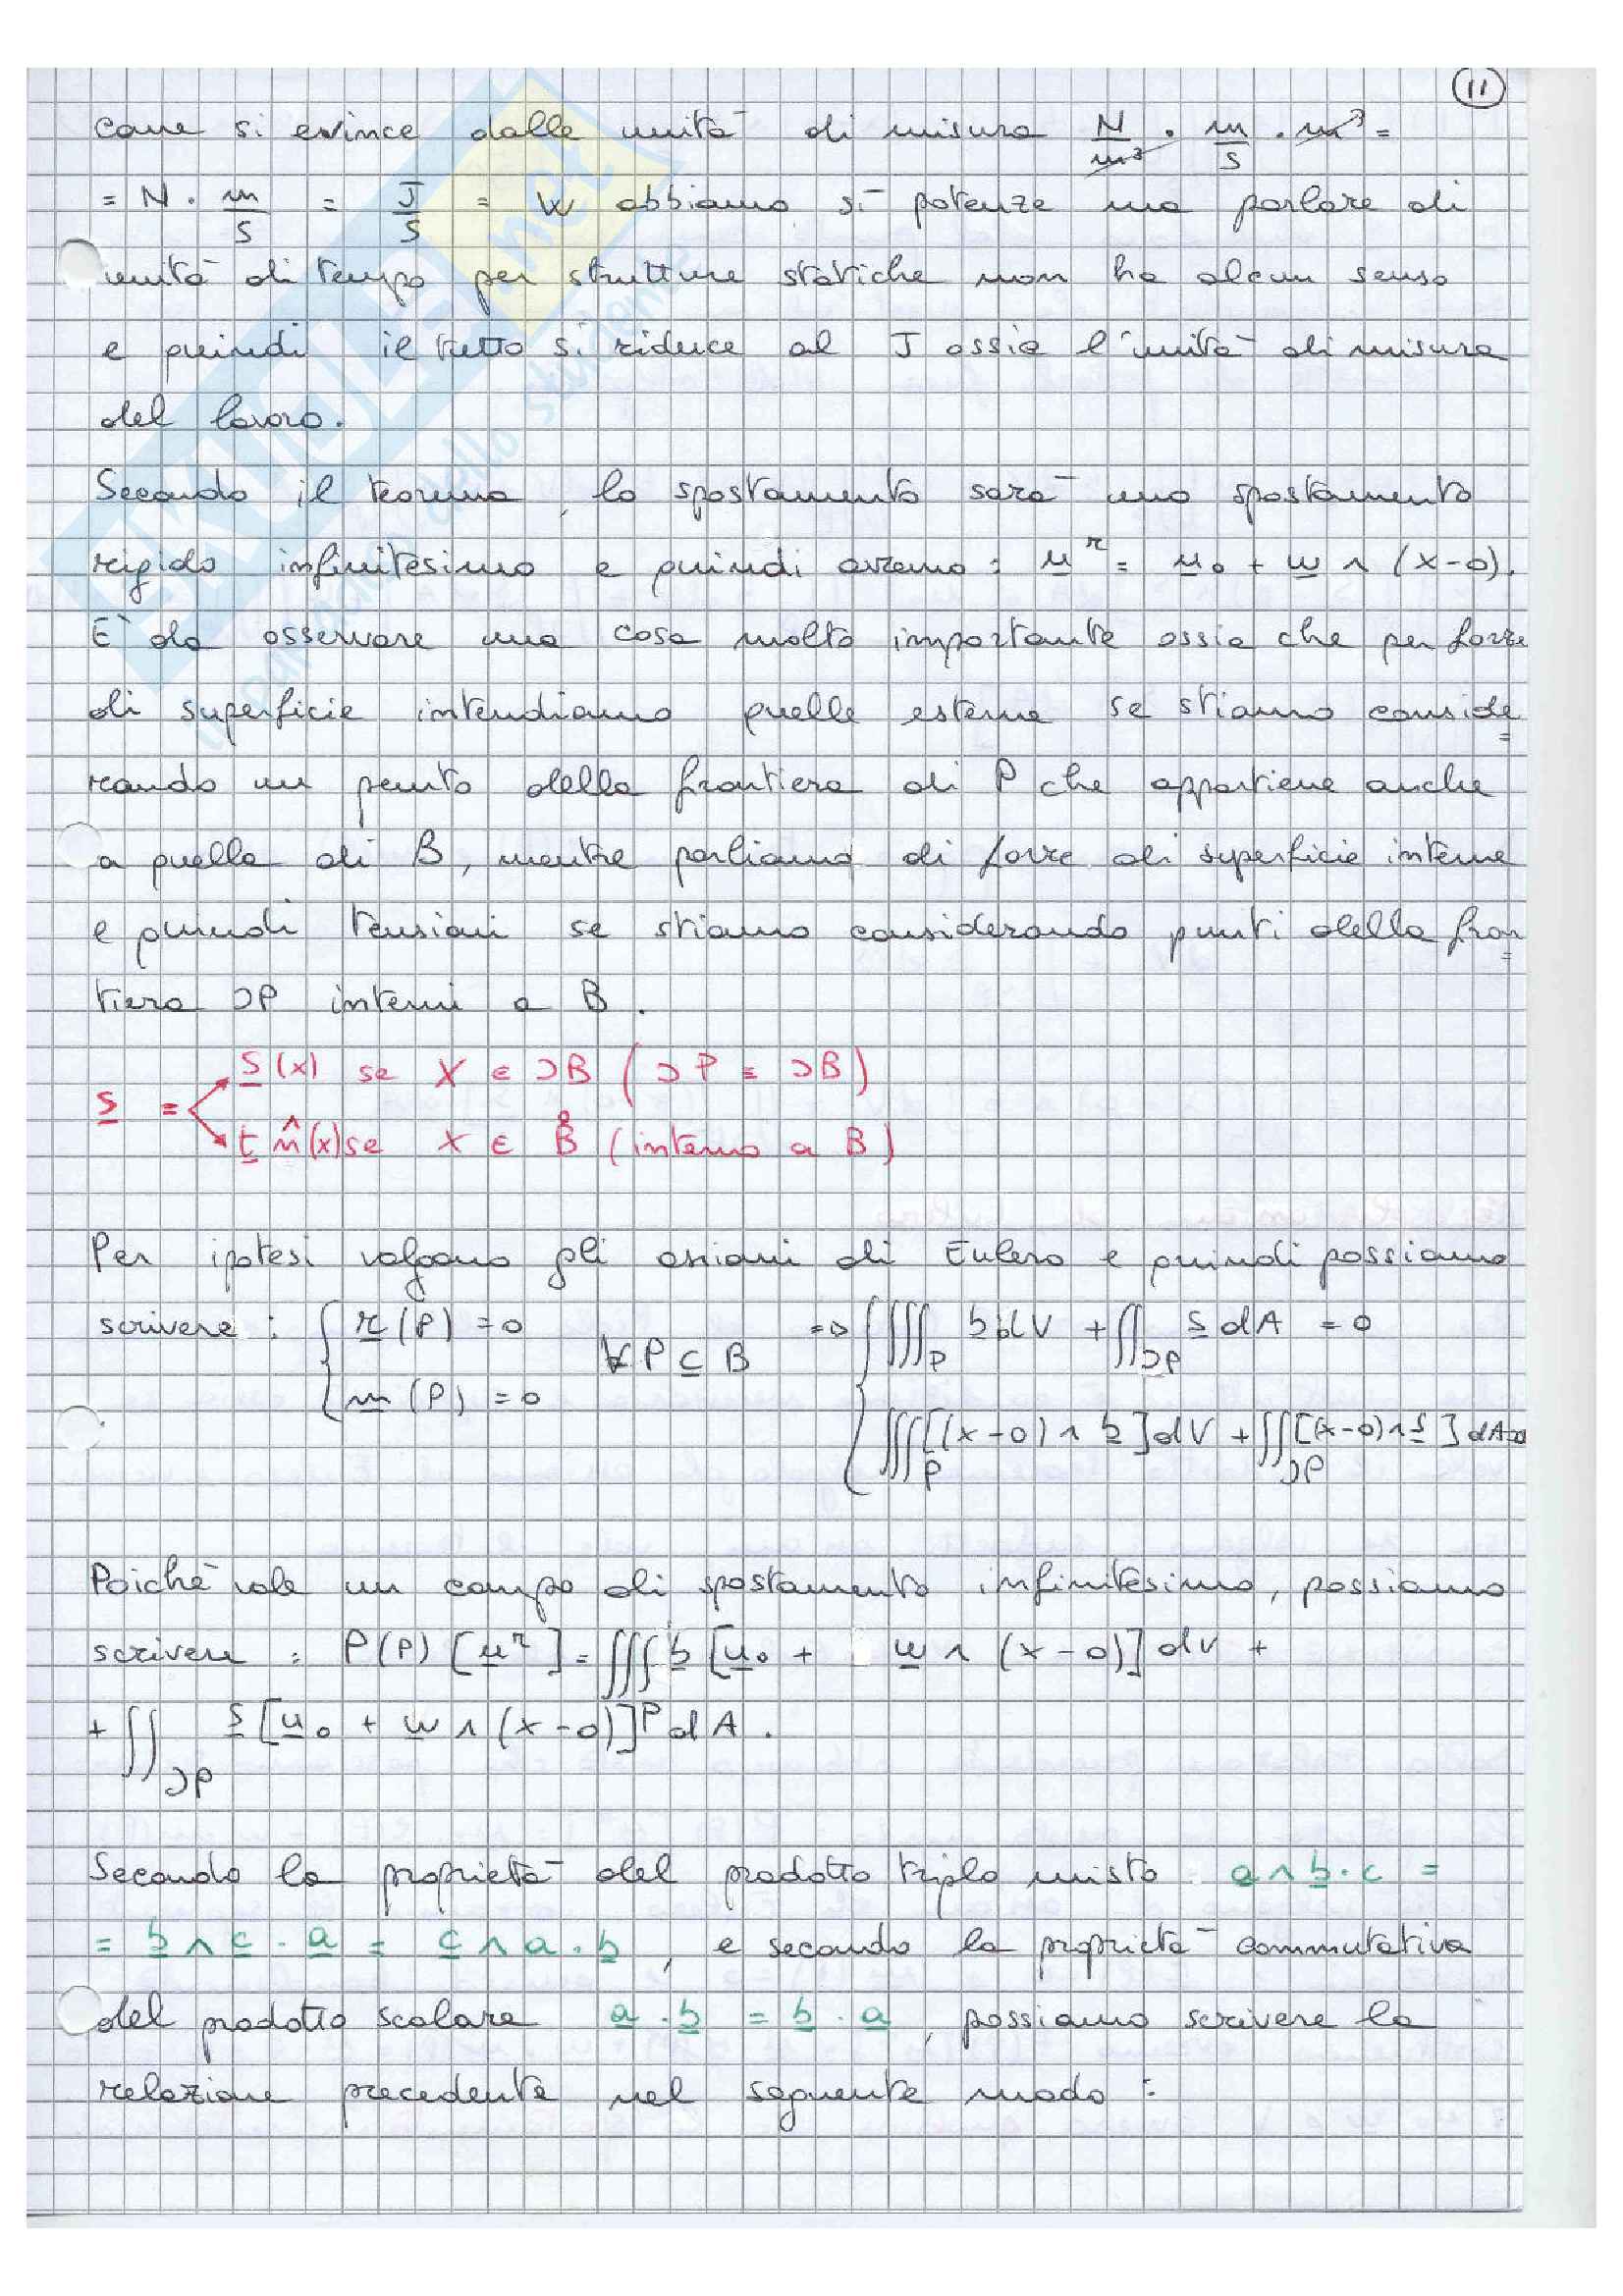 11
come si evince dalle unità di misura N/m³ · m/s · m³ =
= N · m/s = J/s = W abbiamo sì potenze ma parlare di
unità di tempo per strutture statiche non ha alcun senso
e quindi il tutto si riduce al J ossia l'unità di misura
del lavoro.
Secondo il teorema, lo spostamento sarà uno spostamento
rigido infinitesimo e quindi avremo : u^r = u₀ + w ∧ (x-o).
E' da osservare una cosa molto importante ossia che per forze
di superficie intendiamo quelle esterne se stiamo conside=
rando un punto della frontiera di P che appartiene anche
a quella di B, mentre parliamo di forze di superficie interne
e quindi tensioni se stiamo considerando punti della fron=
tiera ∂P interni a B.
s = s(x) se x ∈ ∂B (∂P ≡ ∂B)
t n̂(x) se x ∈ B̊ (interno a B)
Per ipotesi valgono gli assiomi di Eulero e quindi possiamo
scrivere : { r(P) = 0 ∀ P ⊆ B => { ∭_P b dV + ∬_∂P s dA = 0
m(P) = 0 ∭_P [(x-o) ∧ b] dV + ∬_∂P [(x-o) ∧ s] dA = 0
Poichè vale un campo di spostamento infinitesimo, possiamo
scrivere : P(P) [u^r] = ∭ b [u₀ + w ∧ (x-o)] dV +
+ ∬_∂P s [u₀ + w ∧ (x-o)] dA .
Secondo la proprietà del prodotto triplo misto a ∧ b · c =
= b ∧ c · a = c ∧ a · b , e secondo la proprietà commutativa
del prodotto scalare a · b = b · a , possiamo scrivere la
relazione precedente nel seguente modo :